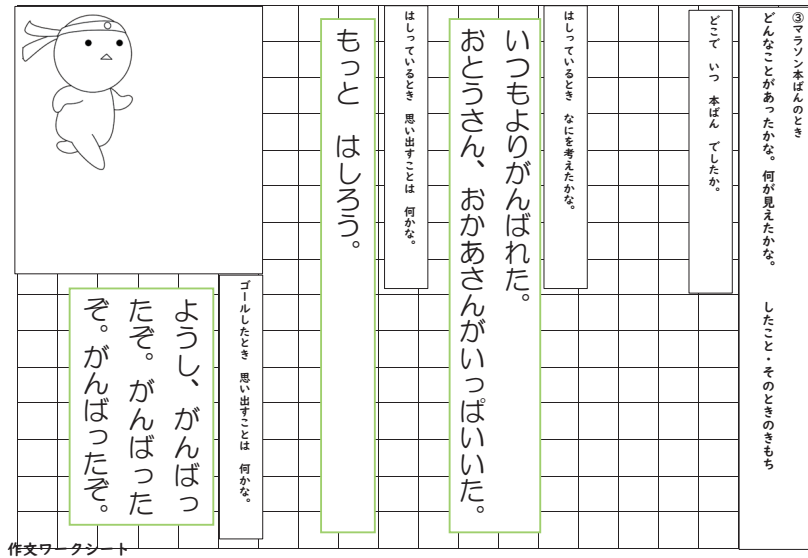 ③マラソン本ばんのとき
どんなことがあったかな。何が見えたかな。　したこと・そのときのきもち
どこで　いつ　本ばん　でしたか。
はしっているとき　なにを考えたかな。
いつもよりがんばれた。
おとうさん、おかあさんがいっぱいいた。
はしっているとき　思い出すことは　何かな。
もっと　はしろう。
ゴールしたとき　思い出すことは　何かな。
ようし、がんばっ
たぞ。がんばった
ぞ。がんばったぞ。
作文ワークシート